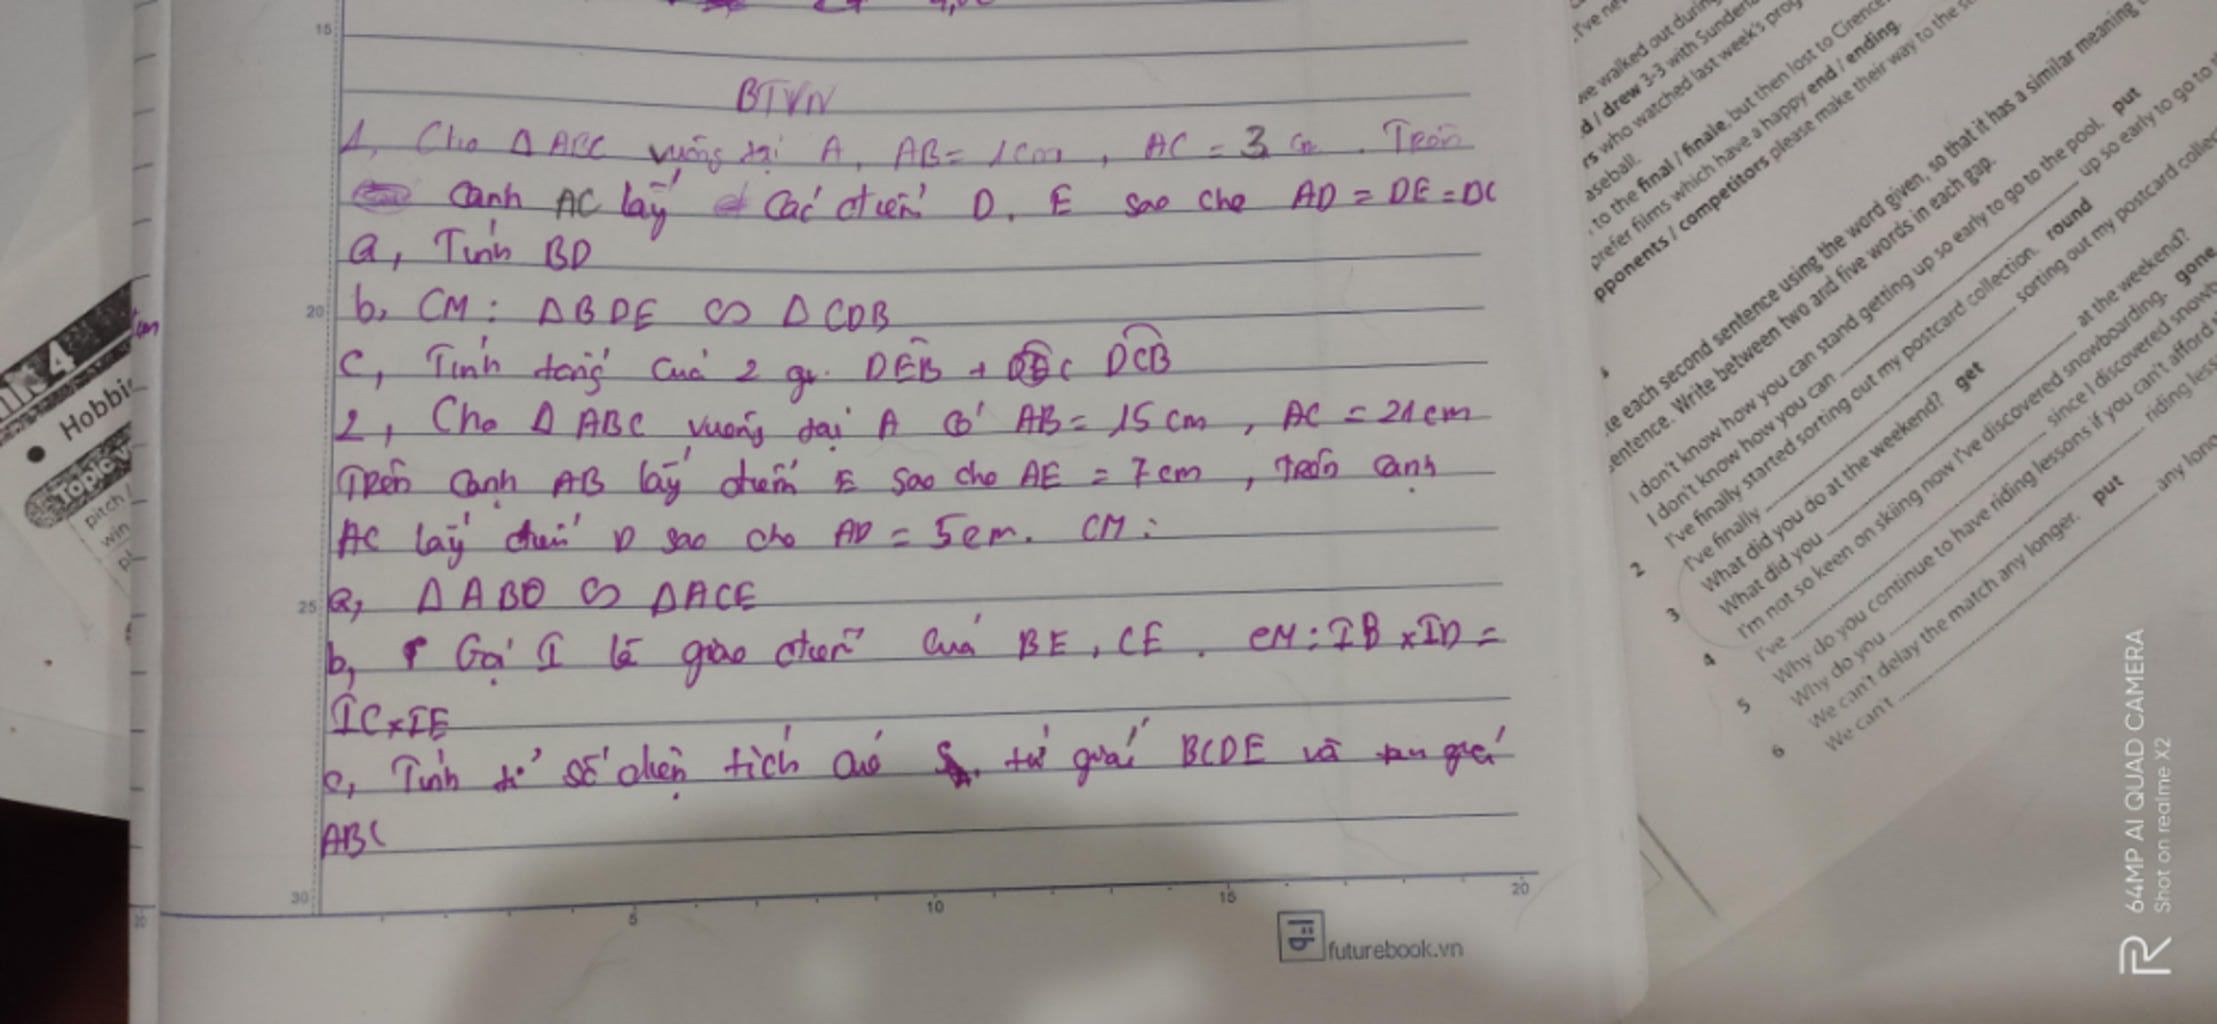 15
BTVN
1, Cho Δ ABC vuông tại A, AB = 1cm, AC = 3 cm. Trên
cạnh AC lấy các điểm D, E sao cho AD = DE = DC
a, Tính BD
20 b, CM: Δ BDE ∽ Δ CDB
c, Tính tổng của 2 gv. DEB + DCB
2, Cho Δ ABC vuông tại A có AB = 15 cm, AC = 21cm
Trên cạnh AB lấy điểm E sao cho AE = 7cm, trên cạnh
AC lấy điểm D sao cho AD = 5cm. CM:
25 a, Δ ABD ∽ Δ ACE
b, Gọi I là giao điểm của BE, CE. CM: IB × ID =
IC × IE
c, Tính tỉ số diện tích của tứ giác BCDE và tam giác
ABC
30
5 10 15 20
futurebook.vn
cm
4
Hobbi
Topic v
pitch
win
I've ne
we walked out during
d / drew 3-3 with Sunder
rs who watched last week's prog
aseball.
to the final / finale, but then lost to Cirence
prefer films which have a happy end / ending.
pponents / competitors please make their way to the s
te each second sentence using the word given, so that it has a similar meaning
entence. Write between two and five words in each gap.
I don't know how you can stand getting up so early to go to the pool. put
I don't know how you can ____ up so early to go to
2 I've finally started sorting out my postcard collection. round
I've finally ____ sorting out my postcard collec
3 What did you do at the weekend? get
What did you ____ at the weekend?
4 I'm not so keen on skiing now I've discovered snowboarding. gone
I've ____ since I discovered snowb
5 Why do you continue to have riding lessons if you can't afford
Why do you ____ riding less
6 We can't delay the match any longer. put
We can't ____ any long
64MP AI QUAD CAMERA
Shot on realme X2